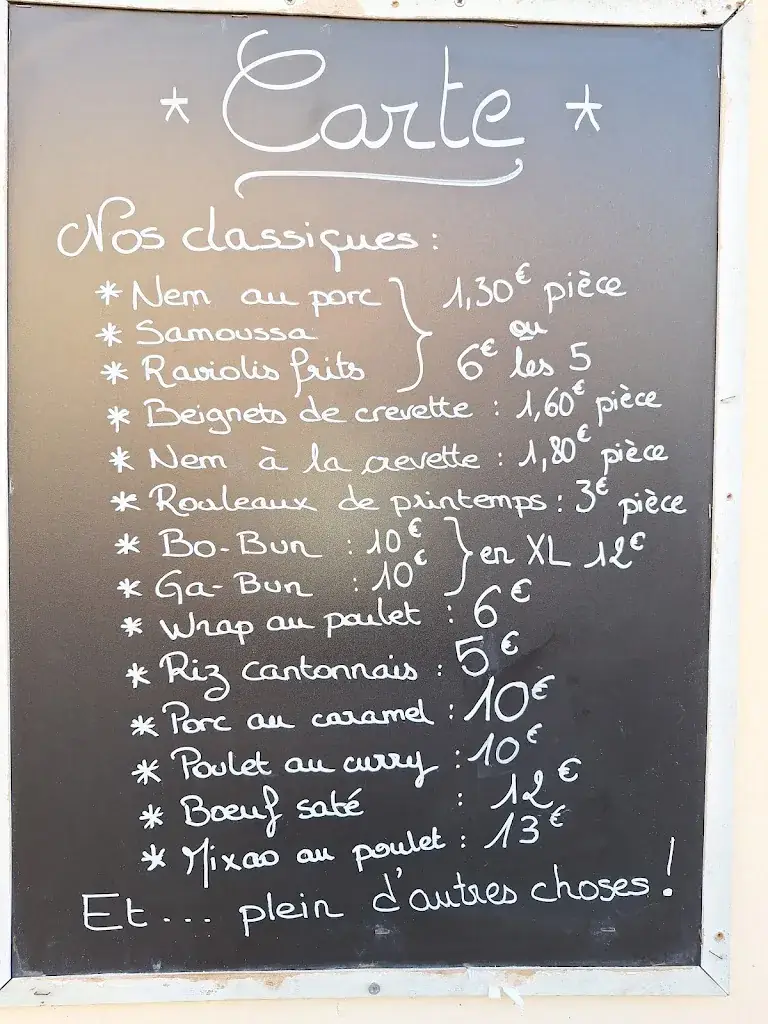 * Carte *
Nos classiques :
* Nem au porc } 1,30€ pièce
* Samoussa ou
* Raviolis frits 6€ les 5
* Beignets de crevette : 1,60€ pièce
* Nem à la crevette : 1,80€ pièce
* Rouleaux de printemps : 3€ pièce
* Bo-Bun : 10€ } en XL 12€
* Ga-Bun : 10€
* Wrap au poulet : 6€
* Riz cantonnais : 5€
* Porc au caramel : 10€
* Poulet au curry : 10€
* Bœuf saté : 12€
* Mixao au poulet : 13€
Et... plein d'autres choses !